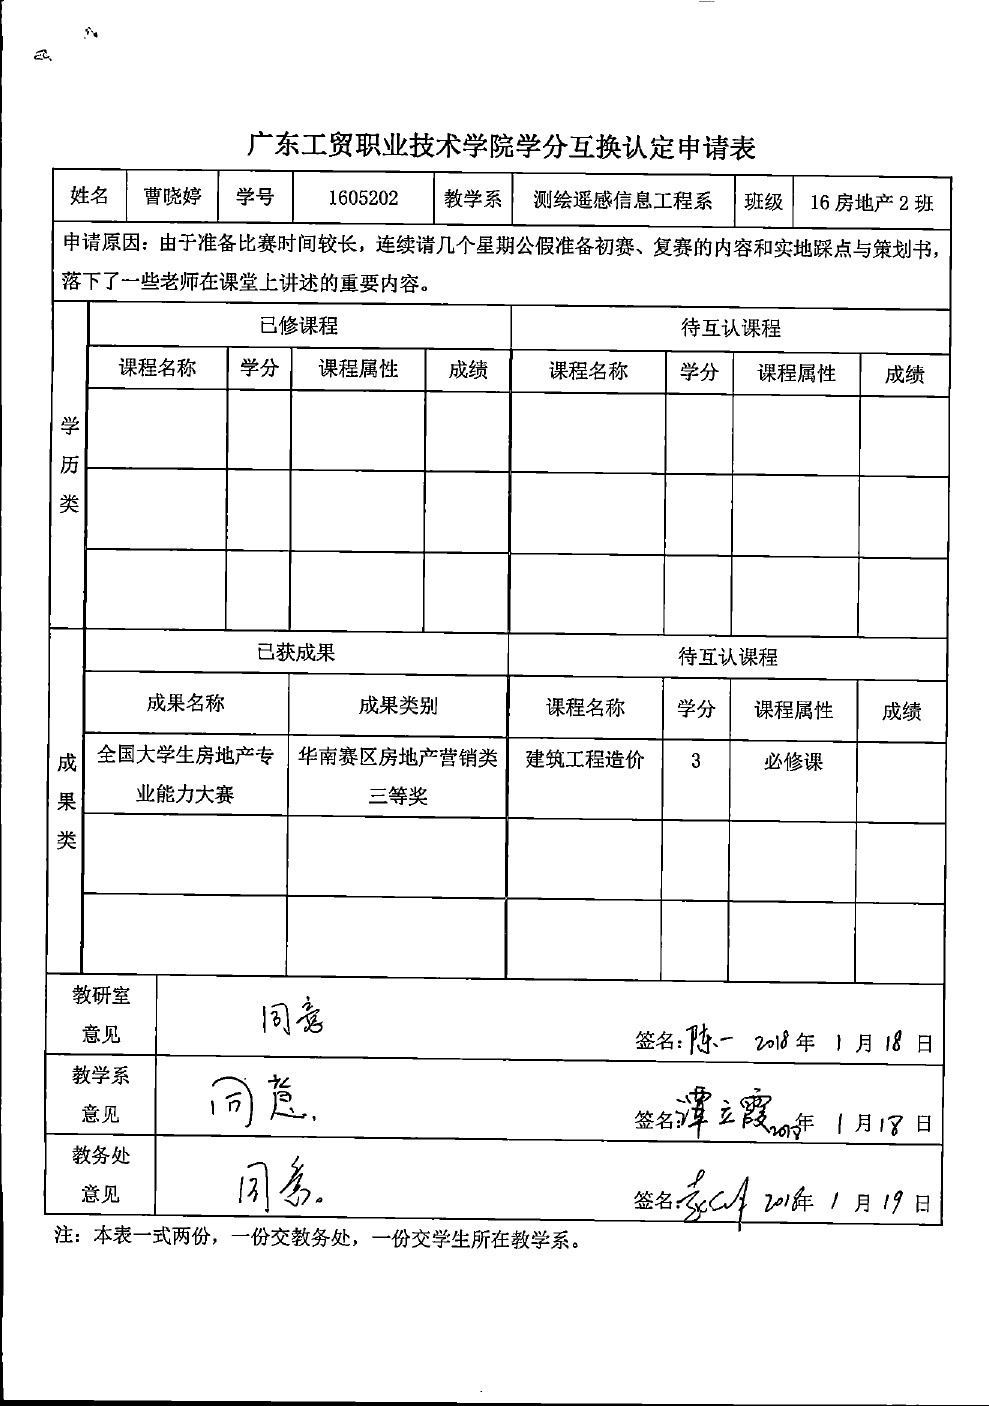 广东工贸职业技术学院学分互换认定申请表
姓名 曹晓婷 学号 1605202 教学系 测绘遥感信息工程系 班级 16房地产2班
申请原因：由于准备比赛时间较长，连续请几个星期公假准备初赛、复赛的内容和实地踩点与策划书，
落下了一些老师在课堂上讲述的重要内容。
学历类
已修课程 待互认课程
课程名称 学分 课程属性 成绩 课程名称 学分 课程属性 成绩
成果类
已获成果 待互认课程
成果名称 成果类别 课程名称 学分 课程属性 成绩
全国大学生房地产专 华南赛区房地产营销类 建筑工程造价 3 必修课
业能力大赛 三等奖
教研室
意见 同意 签名：陈一 2018年 1月18日
教学系
意见 同意. 签名：谭立霞 2018年 1月18日
教务处
意见 同意。 签名： 2018年 1月19日
注：本表一式两份，一份交教务处，一份交学生所在教学系。